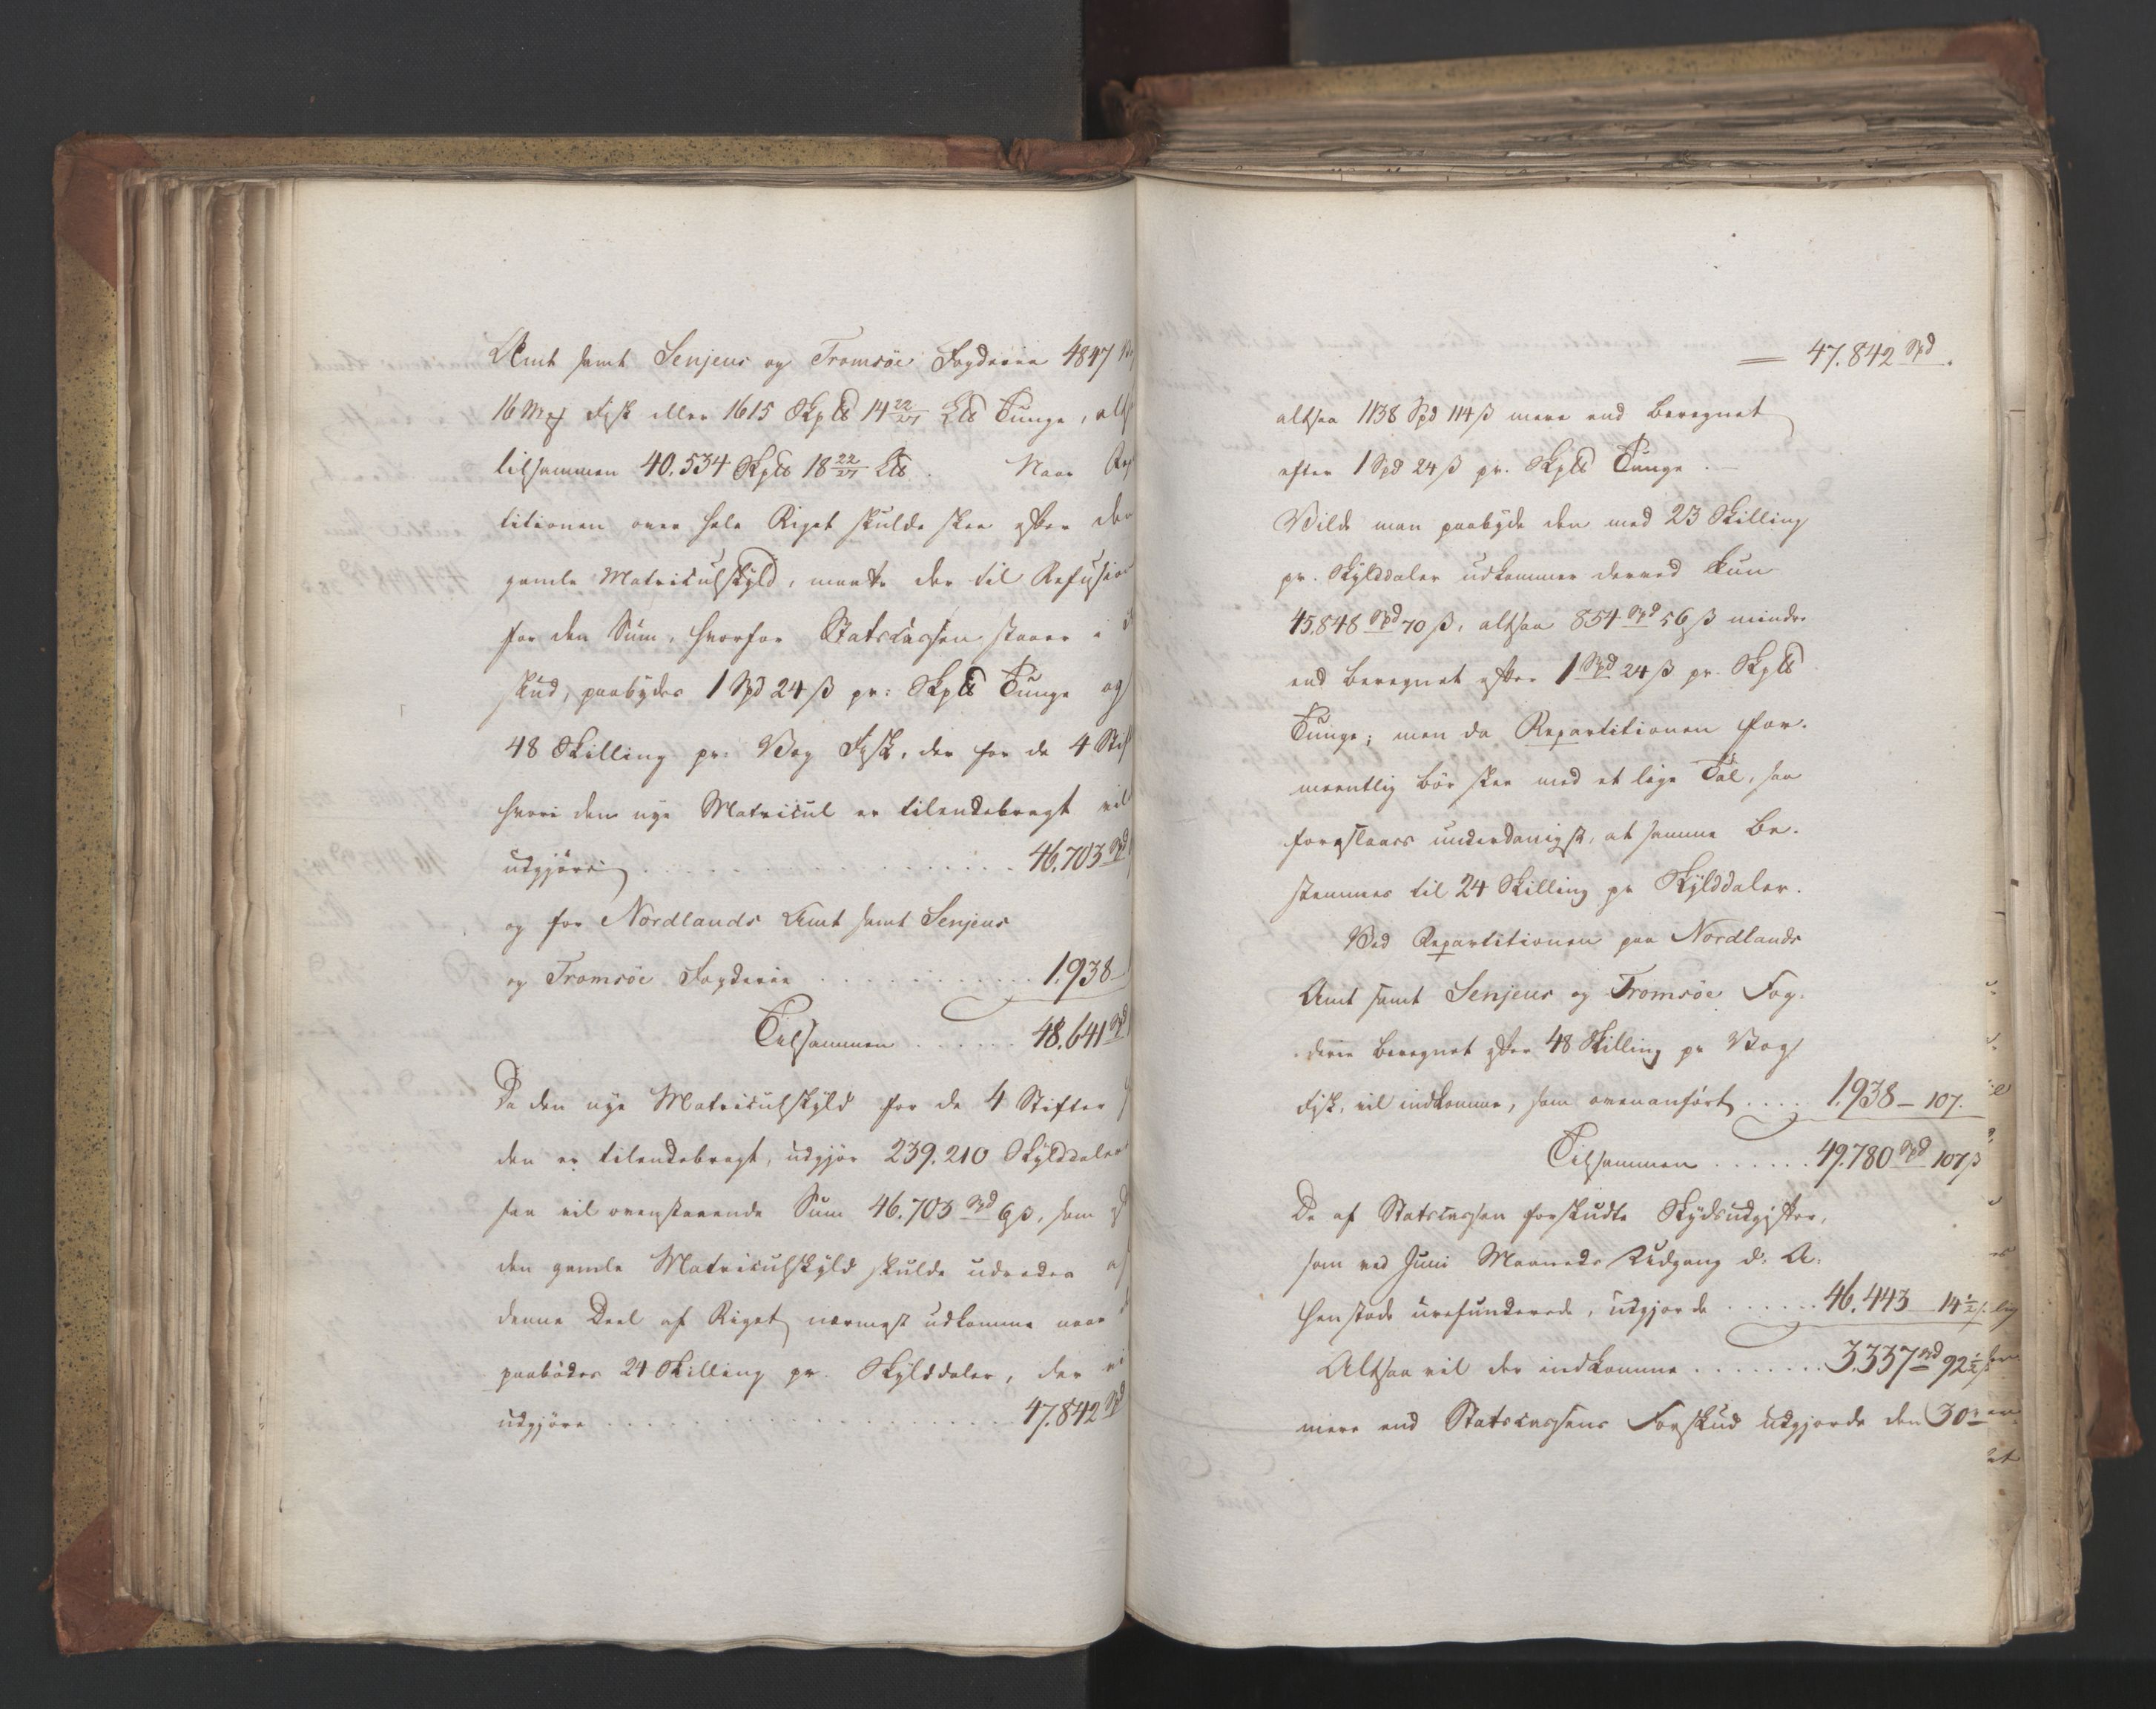 Amt samt Senjens og Tromsöe Fogderie 4847
16 Mrk Fisk eller 1615 Skp℔ 14 22/27 L℔ Tunge,
tilsammen 40.534 Skp℔ 18 22/27 L℔. Naar Re
titionen over hele Riget skulde skee efter den
gamle Matriculskyld, maatte der til Refusion
for den Sum, hvorfor Statscassen staaer i
skud, paabydes 1 Spd 24 ß pr: Skp℔ Tunge og
48 Skilling pr: Vog Fisk, der for de 4 Stif
hvori den nye Matricul er tilendebragt vil
udgjöre . . . . . 46.703 Spd
og for Nordlands Amt samt Senjens
og Tromsöe Fogderie . . . . . 1.938
Tilsammen . . . . . 48.641 Spd
Da den nye Matriculskyld for de 4 Stifter
den er tilendebragt, udgjör 239.210 Skylddaler
saa vil ovenstaaende Sum 46.703 Spd 6 ß, som
den gamle Matriculskyld skulde udredes af
denne Deel af Riget nærmest udkomme naar
paabödes 24 Skilling pr. Skylddaler, der vi
udgjöre . . . . . 47.842 Spd
= 47.842 Spd.
altsaa 1138 Spd 114 ß mere end beregnet
efter 1 Spd 24 ß pr. Skp℔ Tunge.
Vilde man paabyde den med 23 Skilling
pr. Skylddaler udkommer derved kun
45.848 Spd 70 ß, altsaa 854 Spd 56 ß mindre
end beregnet efter 1 Spd 24 ß pr. Skp℔
Tunge; men da Repartitionen for-
meentlig bör skee med et lige Tal, saa
foreslaaes underdanigst, at samme be-
stemmes til 24 Skilling pr Skylddaler.
Ved Repartitionen paa Nordlands
Amt samt Senjens og Tromsöe Fog-
derie beregnet efter 48 Skilling pr Vog
Fisk, vil indkomme, som ovenanfört . . . . 1.938 – 107.
Tilsammen . . . . . . 49.780 Spd 107 ß
De af Statscassen forskudte Skydsudgifter,
som ved Juni Maaneds Udgang d: A:
henstode urefunderede, udgjorde . . . . . . 46.443 14 1/2
Altsaa vil der indkomme . . . . . . . . 3.337 Spd 92 1/2 ß
mere end Statscassens Forskud udgjorde den 30te